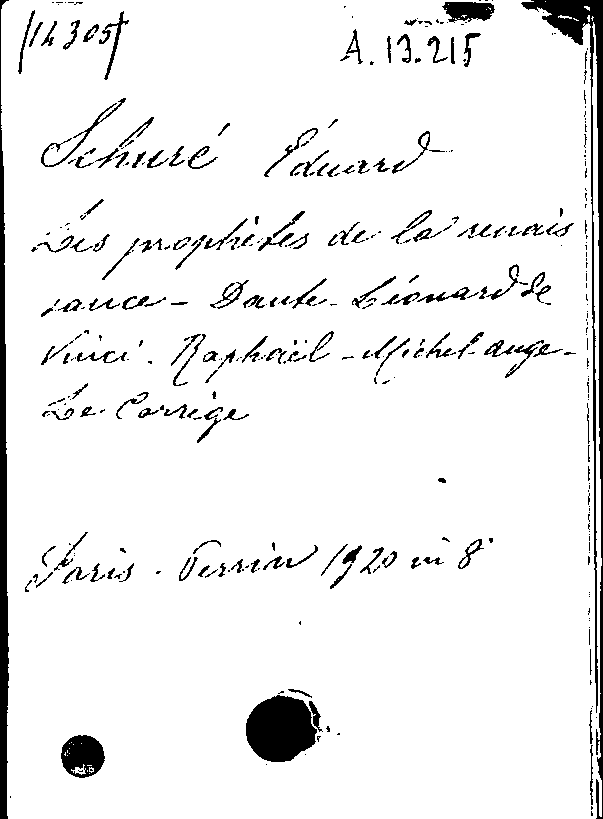 14305
A.13.215
Schuré Éduard
Les prophètes de la renais
sance - Dante - Léonard de
Vinci - Raphaël - Michel-ange -
Le Corrège
Paris - Perrin 1920 in 8°